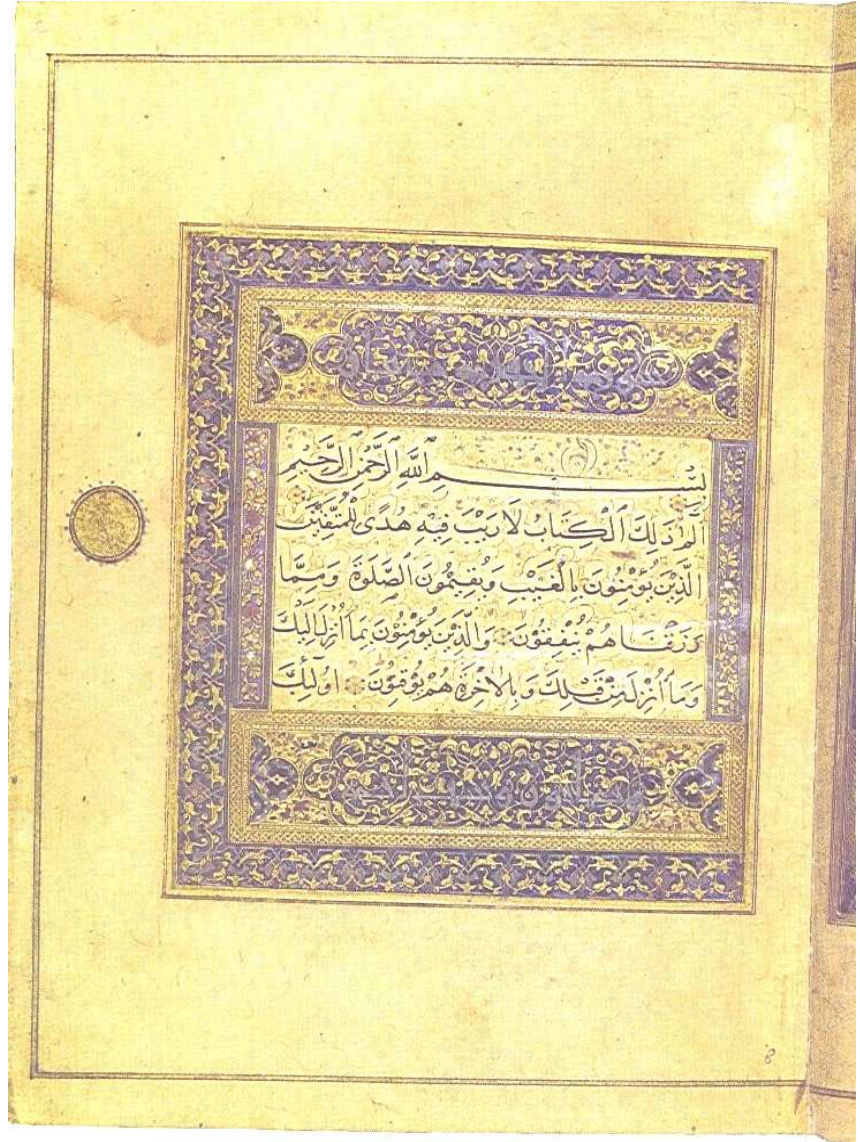 بِسْمِ ٱللَّهِ ٱلرَّحْمٰنِ ٱلرَّحِيمِ
الٓمٓ ذَلِكَ ٱلْكِتَابُ لَا رَيْبَ فِيهِ هُدًى لِلْمُتَّقِينَ
الَّذِينَ يُؤْمِنُونَ بِالْغَيْبِ وَيُقِيمُونَ ٱلصَّلَوةَ وَمِمَّا
رَزَقْنَاهُمْ يُنْفِقُونَ وَالَّذِينَ يُؤْمِنُونَ بِمَا أُنْزِلَ إِلَيْكَ
وَمَا أُنْزِلَ مِنْ قَبْلِكَ وَبِالْآخِرَةِ هُمْ يُوقِنُونَ أُولَٰئِكَ